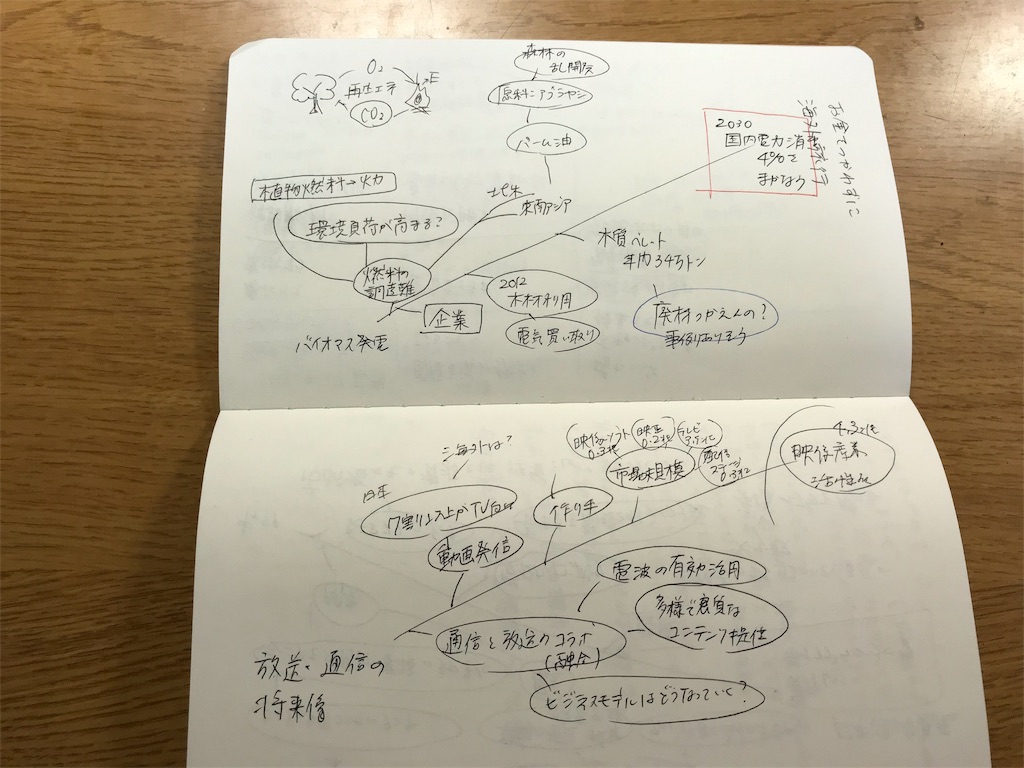 森林の
乱開発
原料=アブラヤシ
パーム油
O₂
再生エネ
CO₂
E
2030
国内電力消費
4%で
まかなう
お金をつかわずに
海外
植物燃料→火力
環境負荷が高まる?
土地
東南アジア
燃料の
調達難
企業
バイオマス発電
2012
木材利用
電気買い取り
木質ペレット
年内34万トン
廃材つかえんの?
事例ありそう
海外は?
日本
7割以上がTV
動画発信
作り手
映像ソフト
0.3兆
映画
0.2兆
テレビ
3.5兆
配信
ステージ
0.3兆
市場規模
4.3兆
映像産業
電波の有効活用
多様で良質な
コンテンツ提供
通信と放送のコラボ
(融合)
ビジネスモデルはどうなっていく?
放送・通信の
将来像